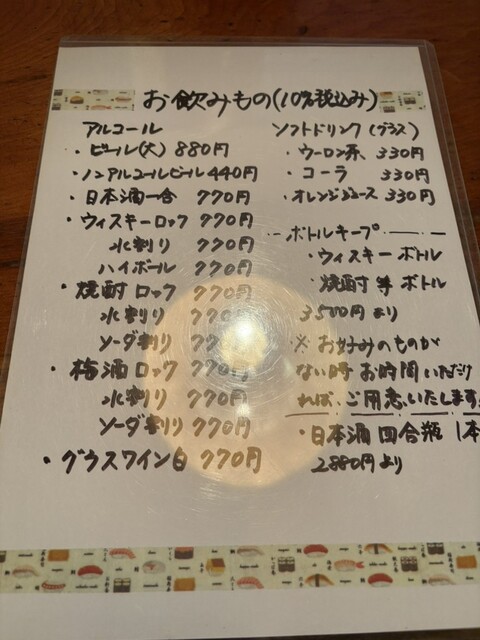 お飲みもの(10%税込み)
アルコール
・ビール(大) 880円
・ノンアルコールビール 440円
・日本酒一合 770円
・ウィスキーロック 770円
水割り 770円
ハイボール 770円
・焼酎 ロック 770円
水割り 770円
ソーダ割り 770円
・梅酒 ロック 770円
水割り 770円
ソーダ割り 770円
・グラスワイン白 770円
ソフトドリンク(グラス)
・ウーロン茶 330円
・コーラ 330円
・オレンジジュース 330円
ボトルキープ
・ウィスキー ボトル
・焼酎 芋 ボトル
3500円より
※お好みのものが
ない時 お時間いただけ
れば、ご用意いたします
・日本酒 四合瓶 1本
2880円より